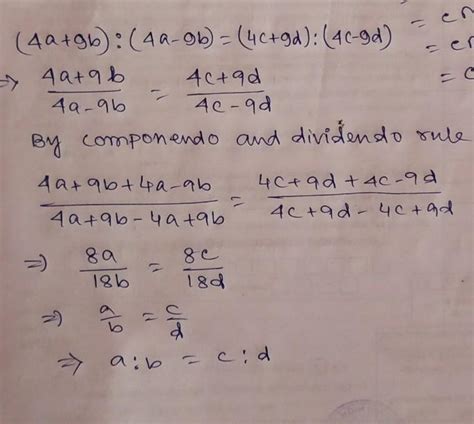 (4a+9b):(4a-9b)=(4c+9d):(4c-9d)
⇒ (4a+9b)/(4a-9b) = (4c+9d)/(4c-9d)
By componendo and dividendo rule
(4a+9b+4a-9b)/(4a+9b-4a+9b) = (4c+9d+4c-9d)/(4c+9d-4c+9d)
⇒ 8a/18b = 8c/18d
⇒ a/b = c/d
⇒ a:b = c:d